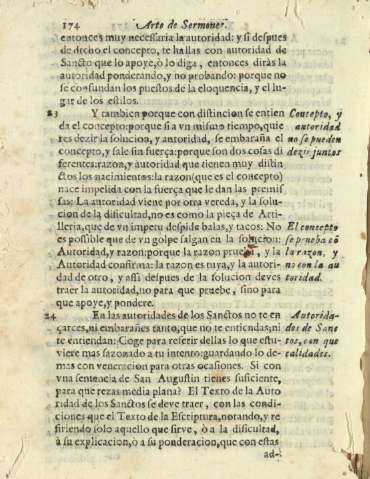 174 Arte de Sermones.
entonces muy necessaria la autoridad: y si despues
de dicho el concepto, te hallas con autoridad de
Sancto que lo apoye, ò lo diga, entonces diràs la
autoridad ponderando, y no probando: porque no
se confundan los puestos de la eloquencia, y el lu-
gar de los estilos.
23 Y tambien porque con distincion se entien
da el concepto: porque si a vn mismo tiempo, quie
res dezir la solucion, y autoridad, se embaraña el
concepto, y sale sin fuerça: porque son dos cosas di
ferentes: razon, y autoridad que tienen muy distin
ctos los nacimientos: la razon (que es el concepto)
nace impelida con la fuerça que le dan las premis
sas: La autoridad viene por otra vereda, y la solu-
cion de la dificultad, no es como la pieça de Arti-
lleria, que de vn impetu despide balas, y tacos: No
es possible que de vn golpe salgan en la solucion:
Autoridad, y razon: porque la razon prueba, y la
Autoridad confirma: la razon es tuya, y la autori-
dad de otro, y assi despues de la solucion deves
traer la autoridad, no para que pruebe, sino para
que apoye, y pondere.
Concepto, y
autoridad
no se pueden
dezir juntos
El concepto
se prueba cō
la razon, y
no con la au
toridad.
24 En las autoridades de los Sanctos no te en
çarces, ni embarañes tanto, que no te entiendas; ni
te entiendan: Coge para referir dellas lo que estu-
viere mas sazonado a tu intento: guardando lo de-
mas con veneracion para otras ocasiones. Si con
vna sentencia de San Augustin tienes suficiente,
para que rezas media plana? El Texto de la Auto
ridad de los Sanctos se deve traer, con las condi-
ciones que el Texto de la Escriptura, notando, y re
firiendo solo aquello que sirve, ò a la dificultad,
à su explicacion, ò a su ponderacion, que con estas
ad-
Autorida-
dos de Sanc
tos, con que
calidades.